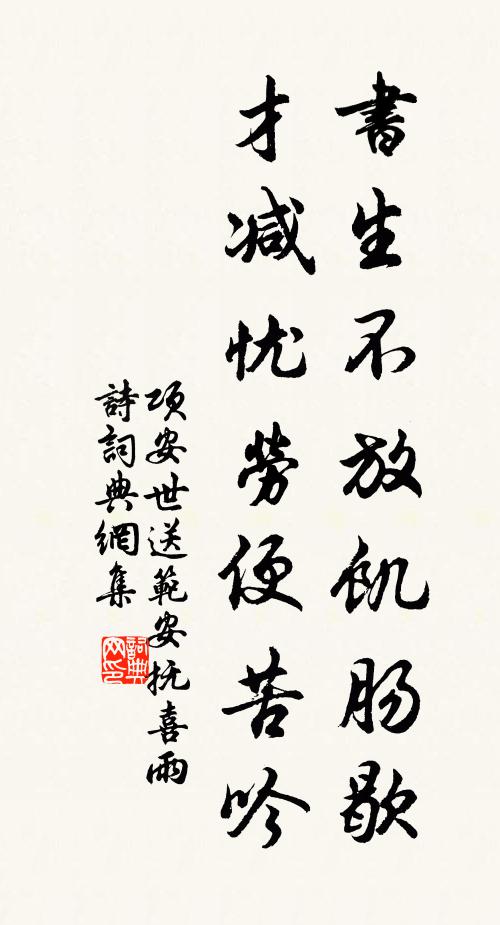 書生不放飢肠歇
才减忧勞便苦吟
项安世送範安抚喜雨
詩詞典網集
詞典網印